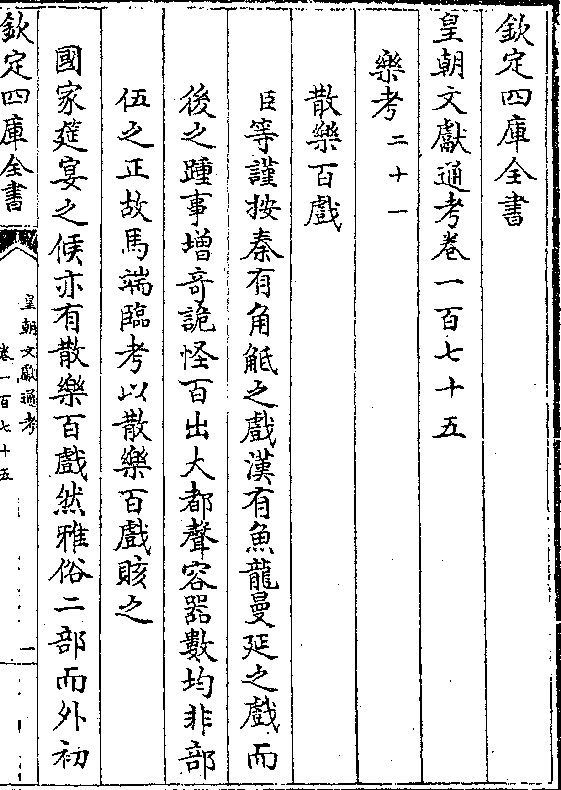 欽定四庫全書
皇朝文獻通考卷一百七十五
樂考二十一
散樂百戲
臣等謹按秦有角觝之戲漢有魚龍曼延之戲而
後之踵事增奇詭怪百出大都聲容器數均非部
伍之正故馬端臨考以散樂百戲賅之
國家筵宴之候亦有散樂百戲然雅俗二部而外初
欽定四庫全書
皇朝文獻通考
卷一百七十五
一